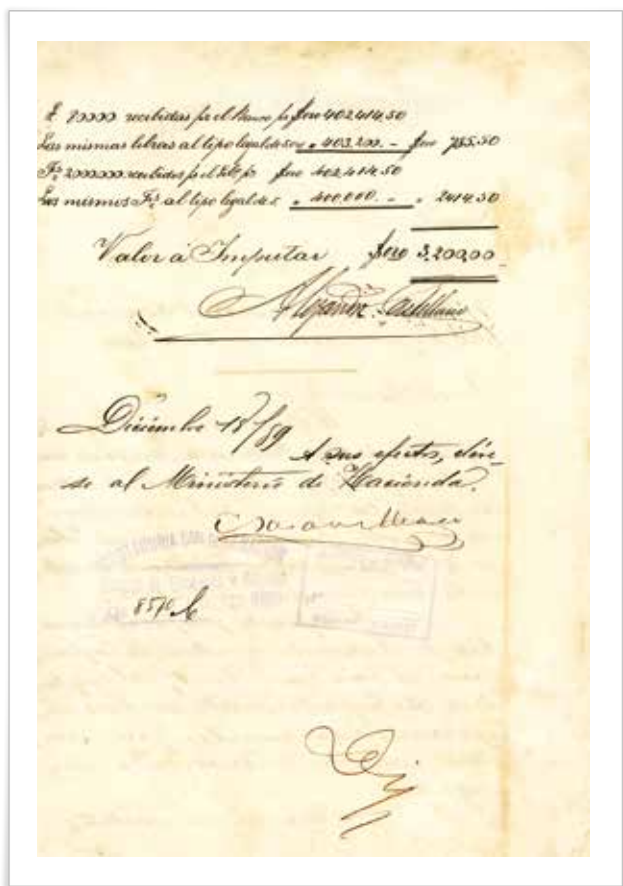 £ 80000 recibidas pr el Banco pr $oro 402.414.50
Las mismas libras al tipo legal de 5.04 " 403.200. - $oro 785.50
Fs 2000000 recibidos pr el id. pr $oro 402.414.50
Los mismos Fs al tipo legal de 5 " 400,000. - " 2414.50
Valor á Imputar $oro 3,200,00
Alejandro Castellano
Diciembre 18/89
A sus efectos, eléve-
se al Ministerio de Hacienda.
8570